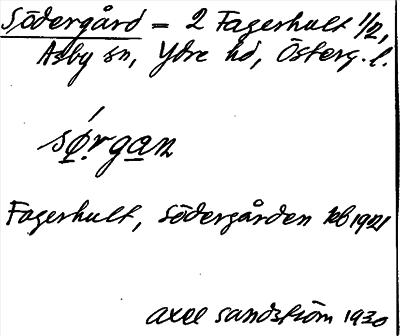 Södergård = 2 Fagerhult 1/2,
Asby sn, Ydre hd, Österg. l.
sǿ̣rga̲n
Fagerhult, Södergården kb 1921
Axel Sandström 1930